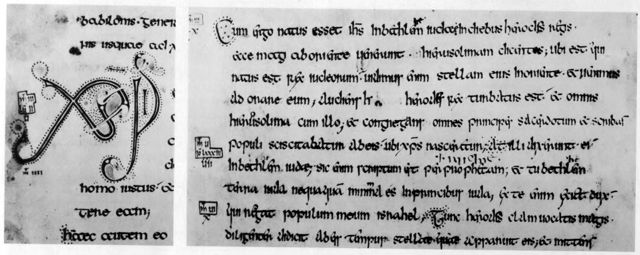 babilonis. gener
nis usquae ad x
homo iustus &
haec autem eo
Cum ergo natus esset ihs inbethlem iudeae indiebus herodis regis.
ecce magi aboriente uenerunt hierusolimam dicentes; ubi est qui
natus est rex iudeorum. uidimus enim stellam eius inoriente. & uenimus
adorare eum; audiens herodis rex turbatus est. & omnis
hierusolima cum illo; & congregans omnes principes sacerdotum & scribas
populi sciscitabatur abeis ubi xps nasceretur; at illi dixerunt ei
inbethlem iudae; sic enim scriptum per prophetam; & tu bethlem
terra iuda nequaquam minima es inprincipibus iuda, ex te enim exiet dux.
qui regat populum meum israhel; Tunc herodis clam uocatis magis
diligenter didicit abeis tempus stellae quae apparuit eis; & mittens